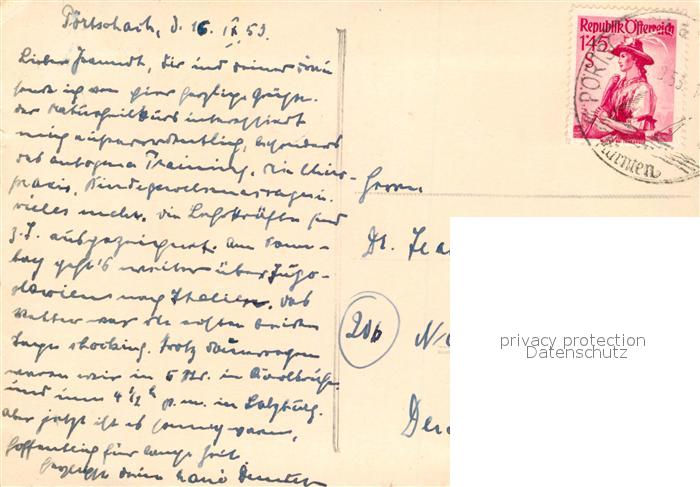 Pörtschach, d. 16. IX 53.
Lieber Freund, Dir und Deiner Frau
sende ich von hier herzliche Grüße.
Der Naturheilkurs interessiert
mich außerordentlich, besonders
das autogene Training, die Chiro-
praxis, Bindegewebsmassagen u.
vieles mehr. Die Lehrkräfte sind
z. T. ausgezeichnet. Am Sonn-
tag geht's weiter über Jugo-
slawien nach Italien. Das
Wetter war die ersten beiden
Tage shocking. Trotz Dauerregen
waren wir in 5 Std. in
und um 4 ½ h p. m. in Salzburg.
Aber jetzt ist es sonnig warm,
hoffentlich für lange Zeit.
Herzlichst Dein
Herrn
Dr.
20b
Republik Österreich
1'45
S
Kärnten
privacy protection
Datenschutz